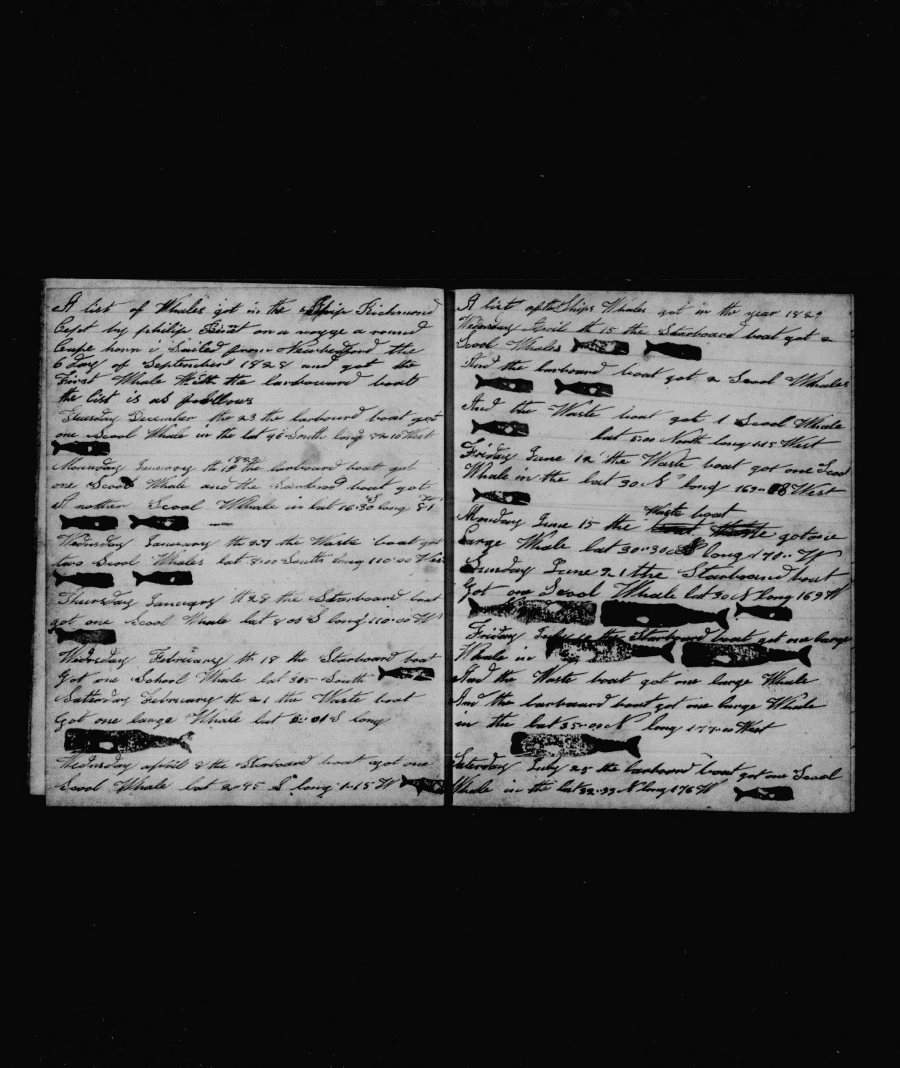 A list of Whales got in the Ship Richmond
Capt by philip on a voyge a round
Cape horn i Sailed from Newbedford the
6 Day of September 1828 and got the
First Whale With the larbouard boat
the list is as follows
Teusday December th 23 the larbound boat got
one Scool Whale in the lat 46 South long West
1829
Monnday Januarary th the larboard boat got
one Scool Whale and the boat got
A nother Scool Whale in lat 16-30 S long 81
Wednesday Januarary th 27 the Waste boat got
two Scool Whales lat 8=00 South long 110=00 West
Thursday Januarary th 28 the Starboard boat
got one Scool Whale lat 8 05 S long 110=00 W
Wednesday February th 18 the Starboard boat
Got one School Whale lat 305 South
Satterday Februarary th 21 the Waste boat
Got one large Whale lat S long
Wednesday april 8 the Starboard boat got one
Scool Whale lat 2=45 S long 115 W
A list of the Ships Whales got in the year 1829
Wednsday April th 15 the Starboard boat got 2
Scool Whales
And the larboard boat got 2 Scool Whales
And the Waste boat got 1 Scool Whale
lat North long 115 West
Friday June 12 the Waste boat got one Scool
Whale in the lat 30 N long 169= West
Waste boat
Monday June 15 the got one
Large Whale lat 30=30 long 170= W
Sunday June 21 the Starboard boat
Got one Scool Whale lat 30 N long 169 W
Friday the Starboard boat got one large
Whale in
And the Waste boat got one large Whale
And the larboard boat got one large Whale
in the lat 35=00 N long West
Saterday July 25 the larboard boat got one Scool
Whale in the lat 32=33 N long 176 W